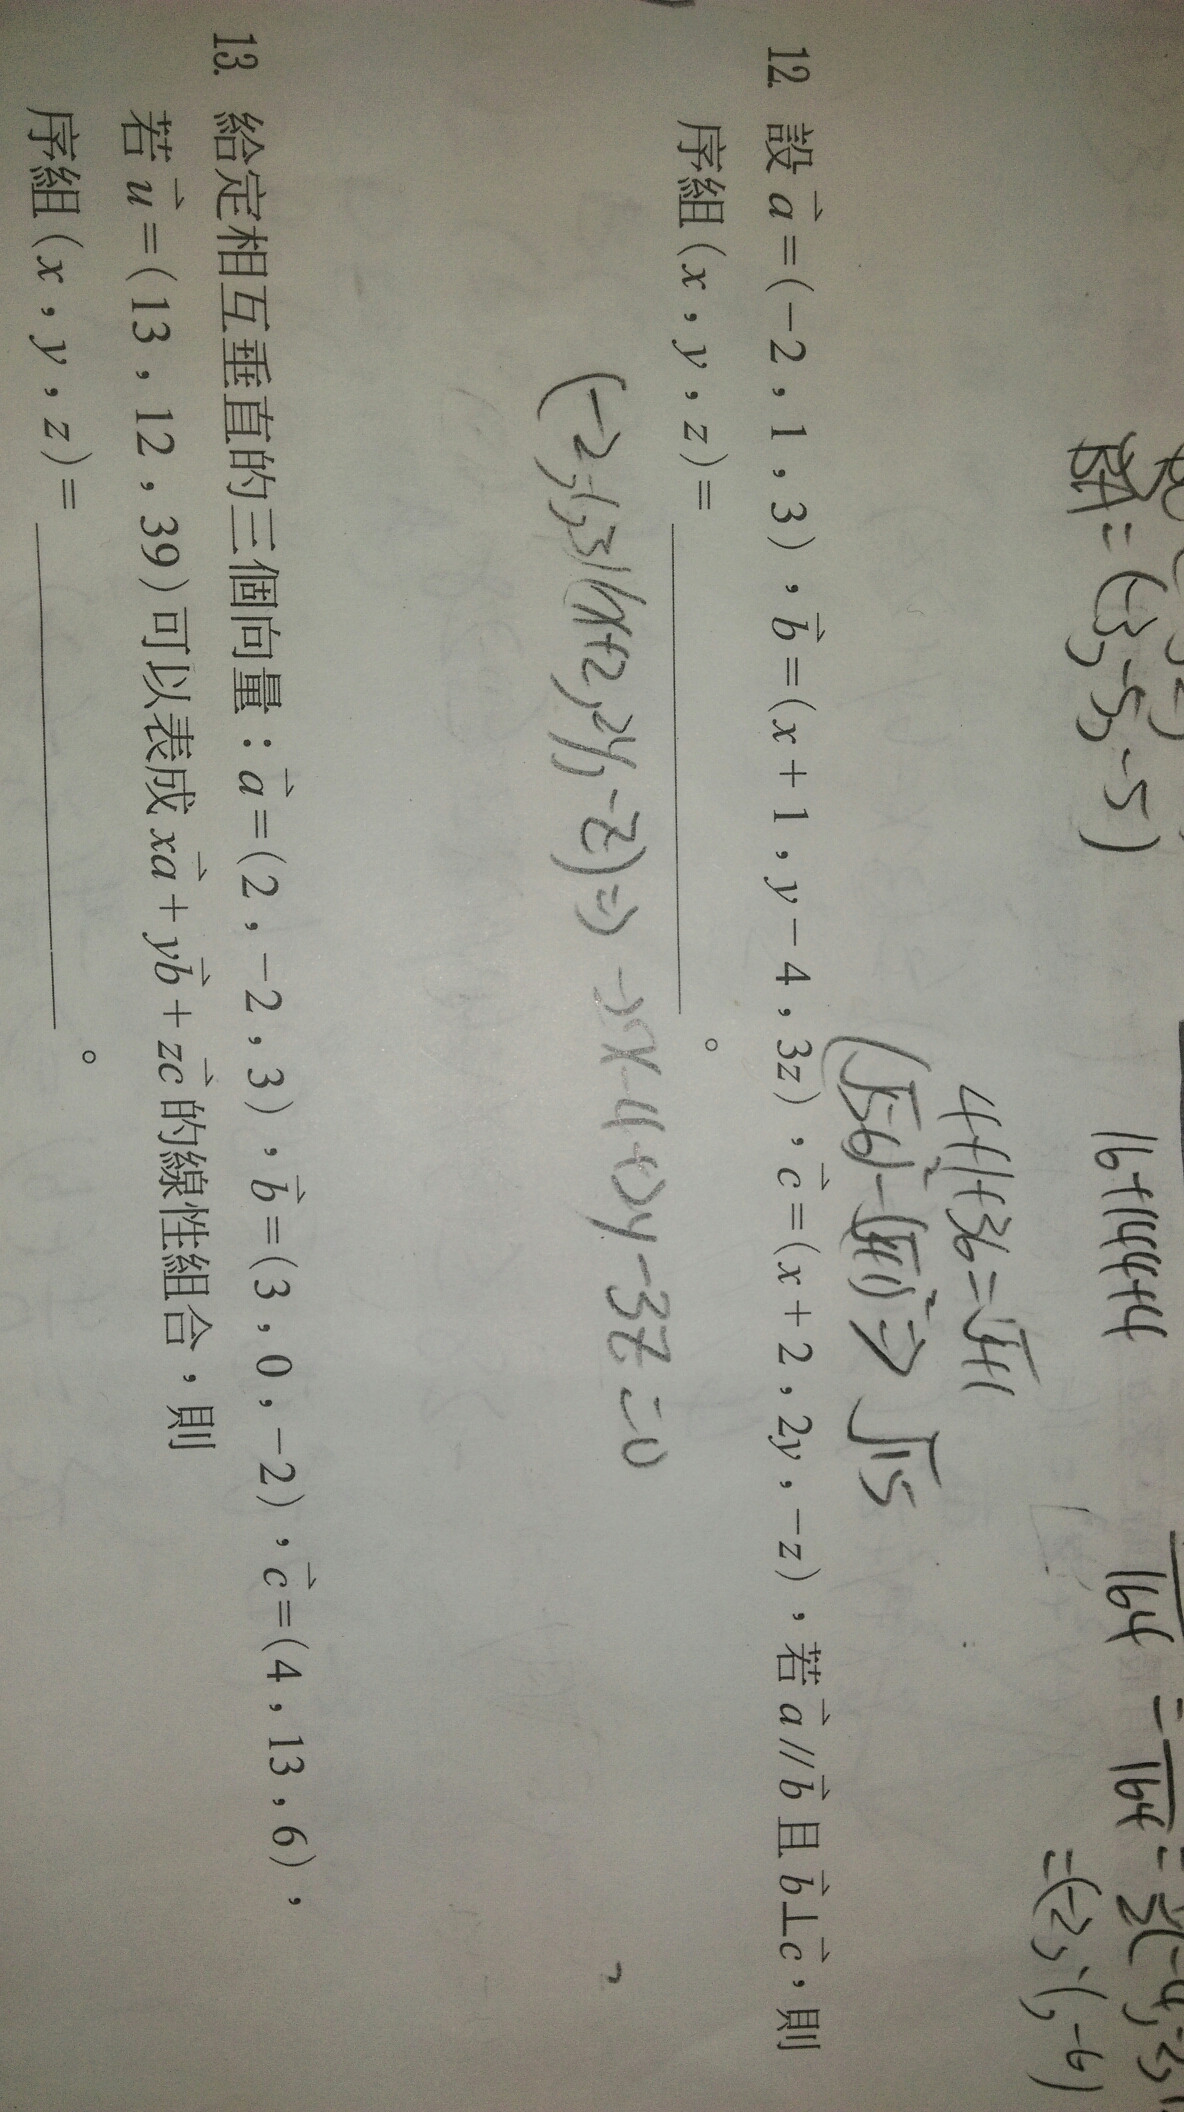 BA = (-3, -5, -5)
16+144+4
164
= 164 =
=(-2, -1, -6)
4+1+36=√41
(√56)²-(√41)² => √15
12. 設 a⃗=(-2,1,3),b⃗=(x+1,y-4,3z),c⃗=(x+2,2y,-z),若 a⃗//b⃗ 且 b⃗⊥c⃗,則
序組(x,y,z)=＿＿＿＿＿＿。
(-2,1,3)(x+2,2y,-z) => -2x-4+2y-3z=0
13. 給定相互垂直的三個向量:a⃗=(2,-2,3),b⃗=(3,0,-2),c⃗=(4,13,6),
若 u⃗=(13,12,39)可以表成 xa⃗+yb⃗+zc⃗ 的線性組合,則
序組(x,y,z)=＿＿＿＿＿＿。